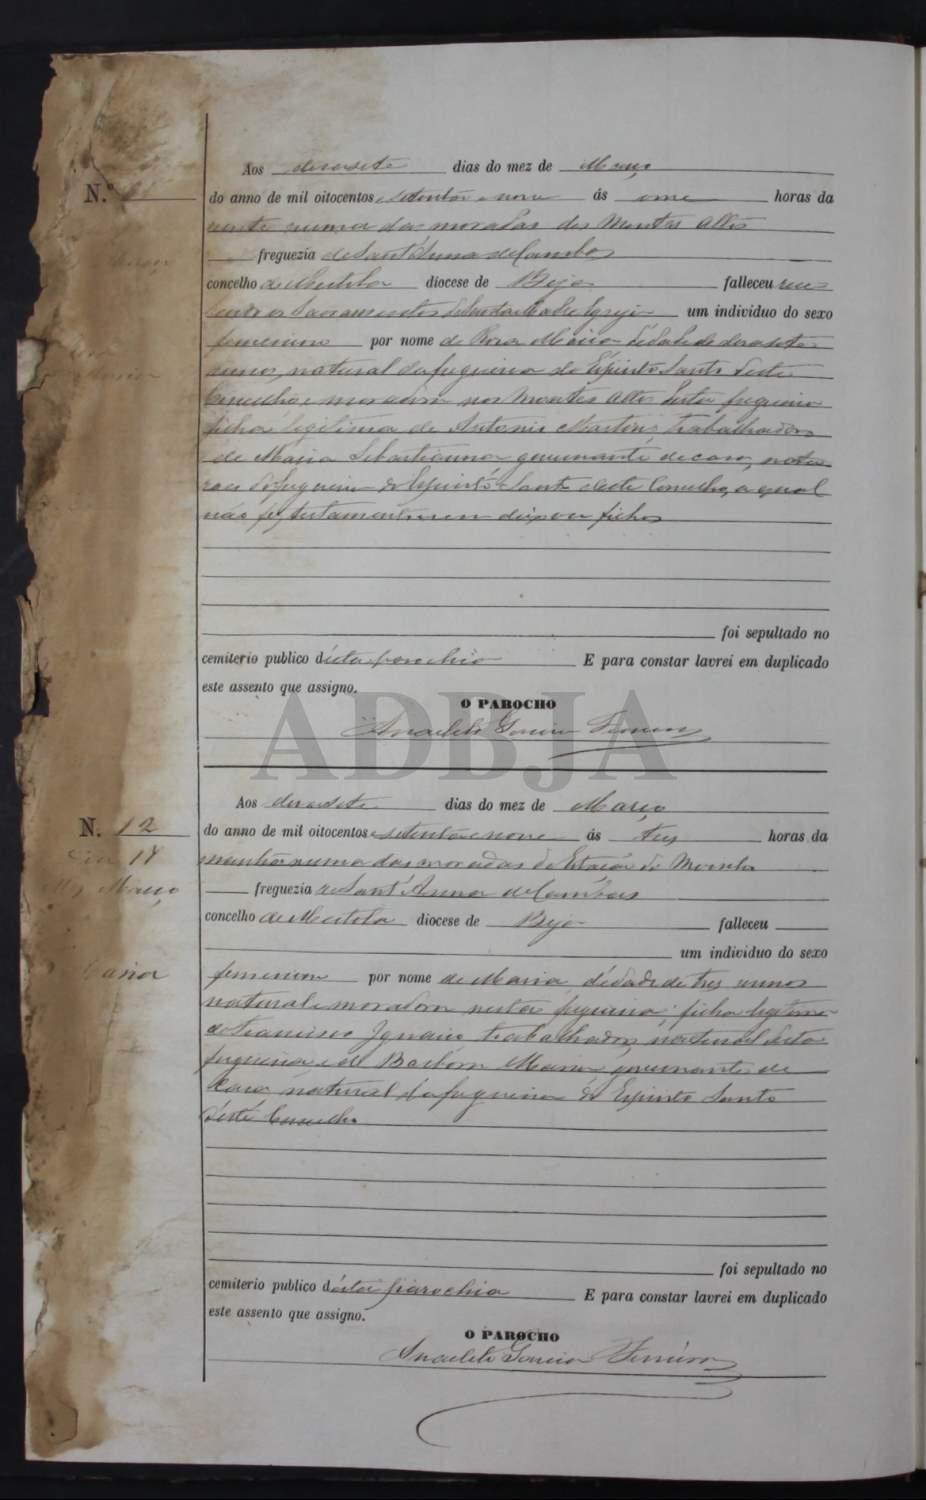 Aos desasete dias do mez de Março
N.º
do anno de mil oitocentos setenta e nove ás onze horas da
noute numa das moradas dos Montes Altos
freguezia de Sant'Anna de Cambas
concelho de Mertola diocese de Beja falleceu
Sacramentos da Santa Madre Igreja um individuo do sexo
femenino por nome de Rosa Maria d'edade de desasete
annos, natural da freguezia do Espirito Santo deste
Concelho e moradora nos Montes Altos desta freguezia
filha legitima de Antonio Martins, trabalhador
e de Maria Sebastianna governante de casa, natu
raes da freguezia do Espirito Santo deste Concelho, a qual
não fez testamento nem deixou filhos
foi sepultado no
cemiterio publico d'esta parochia E para constar lavrei em duplicado
este assento que assigno.
O PAROCHO
ADBJA
Anacleto
Aos desasete dias do mez de Março
N. 12
do anno de mil oitocentos e setenta e nove ás tres horas da
Dia 17
manhã numa das moradas da
de Março
freguezia de Sant'Anna de Cambas
concelho de Mertola diocese de Beja falleceu
um individuo do sexo
Maria
femenino por nome de Maria d'edade de tres annos
natural e moradora nesta freguezia; filha legitima
de Francisco Ignacio trabalhador, natural desta
freguezia e de Barbara Maria governante de
casa, natural da freguezia do Espirito Santo
d'este Concelho
foi sepultado no
cemiterio publico d'esta parochia E para constar lavrei em duplicado
este assento que assigno.
O PAROCHO
Anacleto